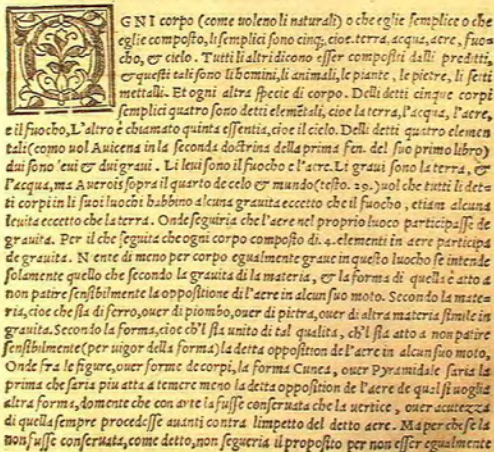 OGNI corpo (come uoleno li naturali) o che eglie semplice o che
eglie composto, li semplici sono cinq;, cioe. terra, acqua, aere, fuo-
cho, & cielo. Tutti li altri dicono esser compositi dalli preditti,
& questi tali sono li homini, li animali, le piante, le pietre, li setti
mettalli. Et ogni altra specie di corpo. Delli detti cinque corpi
semplici quatro sono detti elemētali, cioe la terra, l'acqua, l'aere,
e il fuocho, L'altro è chiamato quinta essentia, cioe il cielo. Delli detti quatro elemen
tali (come uol Auicena in la seconda doctrina della prima fen. del suo primo libro)
dui sono leui & dui graui. Li leui sono il fuocho e l'aere. Li graui sono la terra, &
l'acqua, ma Auerois sopra il quarto de celo & mundo (testo. 29.) uol che tutti li det-
ti corpi in li suoi luochi habbino alcuna grauita eccetto che il fuocho, etiam alcuna
leuita eccetto che la terra. Onde seguiria che l'aere nel proprio luoco participasse de
grauita. Per il che seguita che ogni corpo composto di. 4. elementi in aere participa
de grauita. N ente di meno per corpo egualmente graue in questo luocho se intende
solamente quello che secondo la grauita di la materia, & la forma di quella è atto a
non patire sensibilmente la oppositione di l'aere in alcun suo moto. Secondo la mate-
ria, cioe che sia di ferro, ouer di piombo, ouer di pietra, ouer di altra materia simile in
grauita. Secondo la forma, cioe ch'l sia unito di tal qualita, ch'l sia atto a non patire
sensibilmente (per uigor della forma) la detta opposition de l'aere in alcun suo moto,
Onde fra le figure, ouer forme de corpi, la forma Cunea, ouer Pyramidale saria la
prima che saria piu atta a temere meno la detta opposition de l'aere de qual si uoglia
altra forma, domente che con arte la fusse conseruata che la uertice, ouer acutezza
di quella sempre procedesse auanti contra l'impetto del detto aere. Ma perche se la
non fusse conseruata, come detto, non segueria il proposito per non esser egualmente